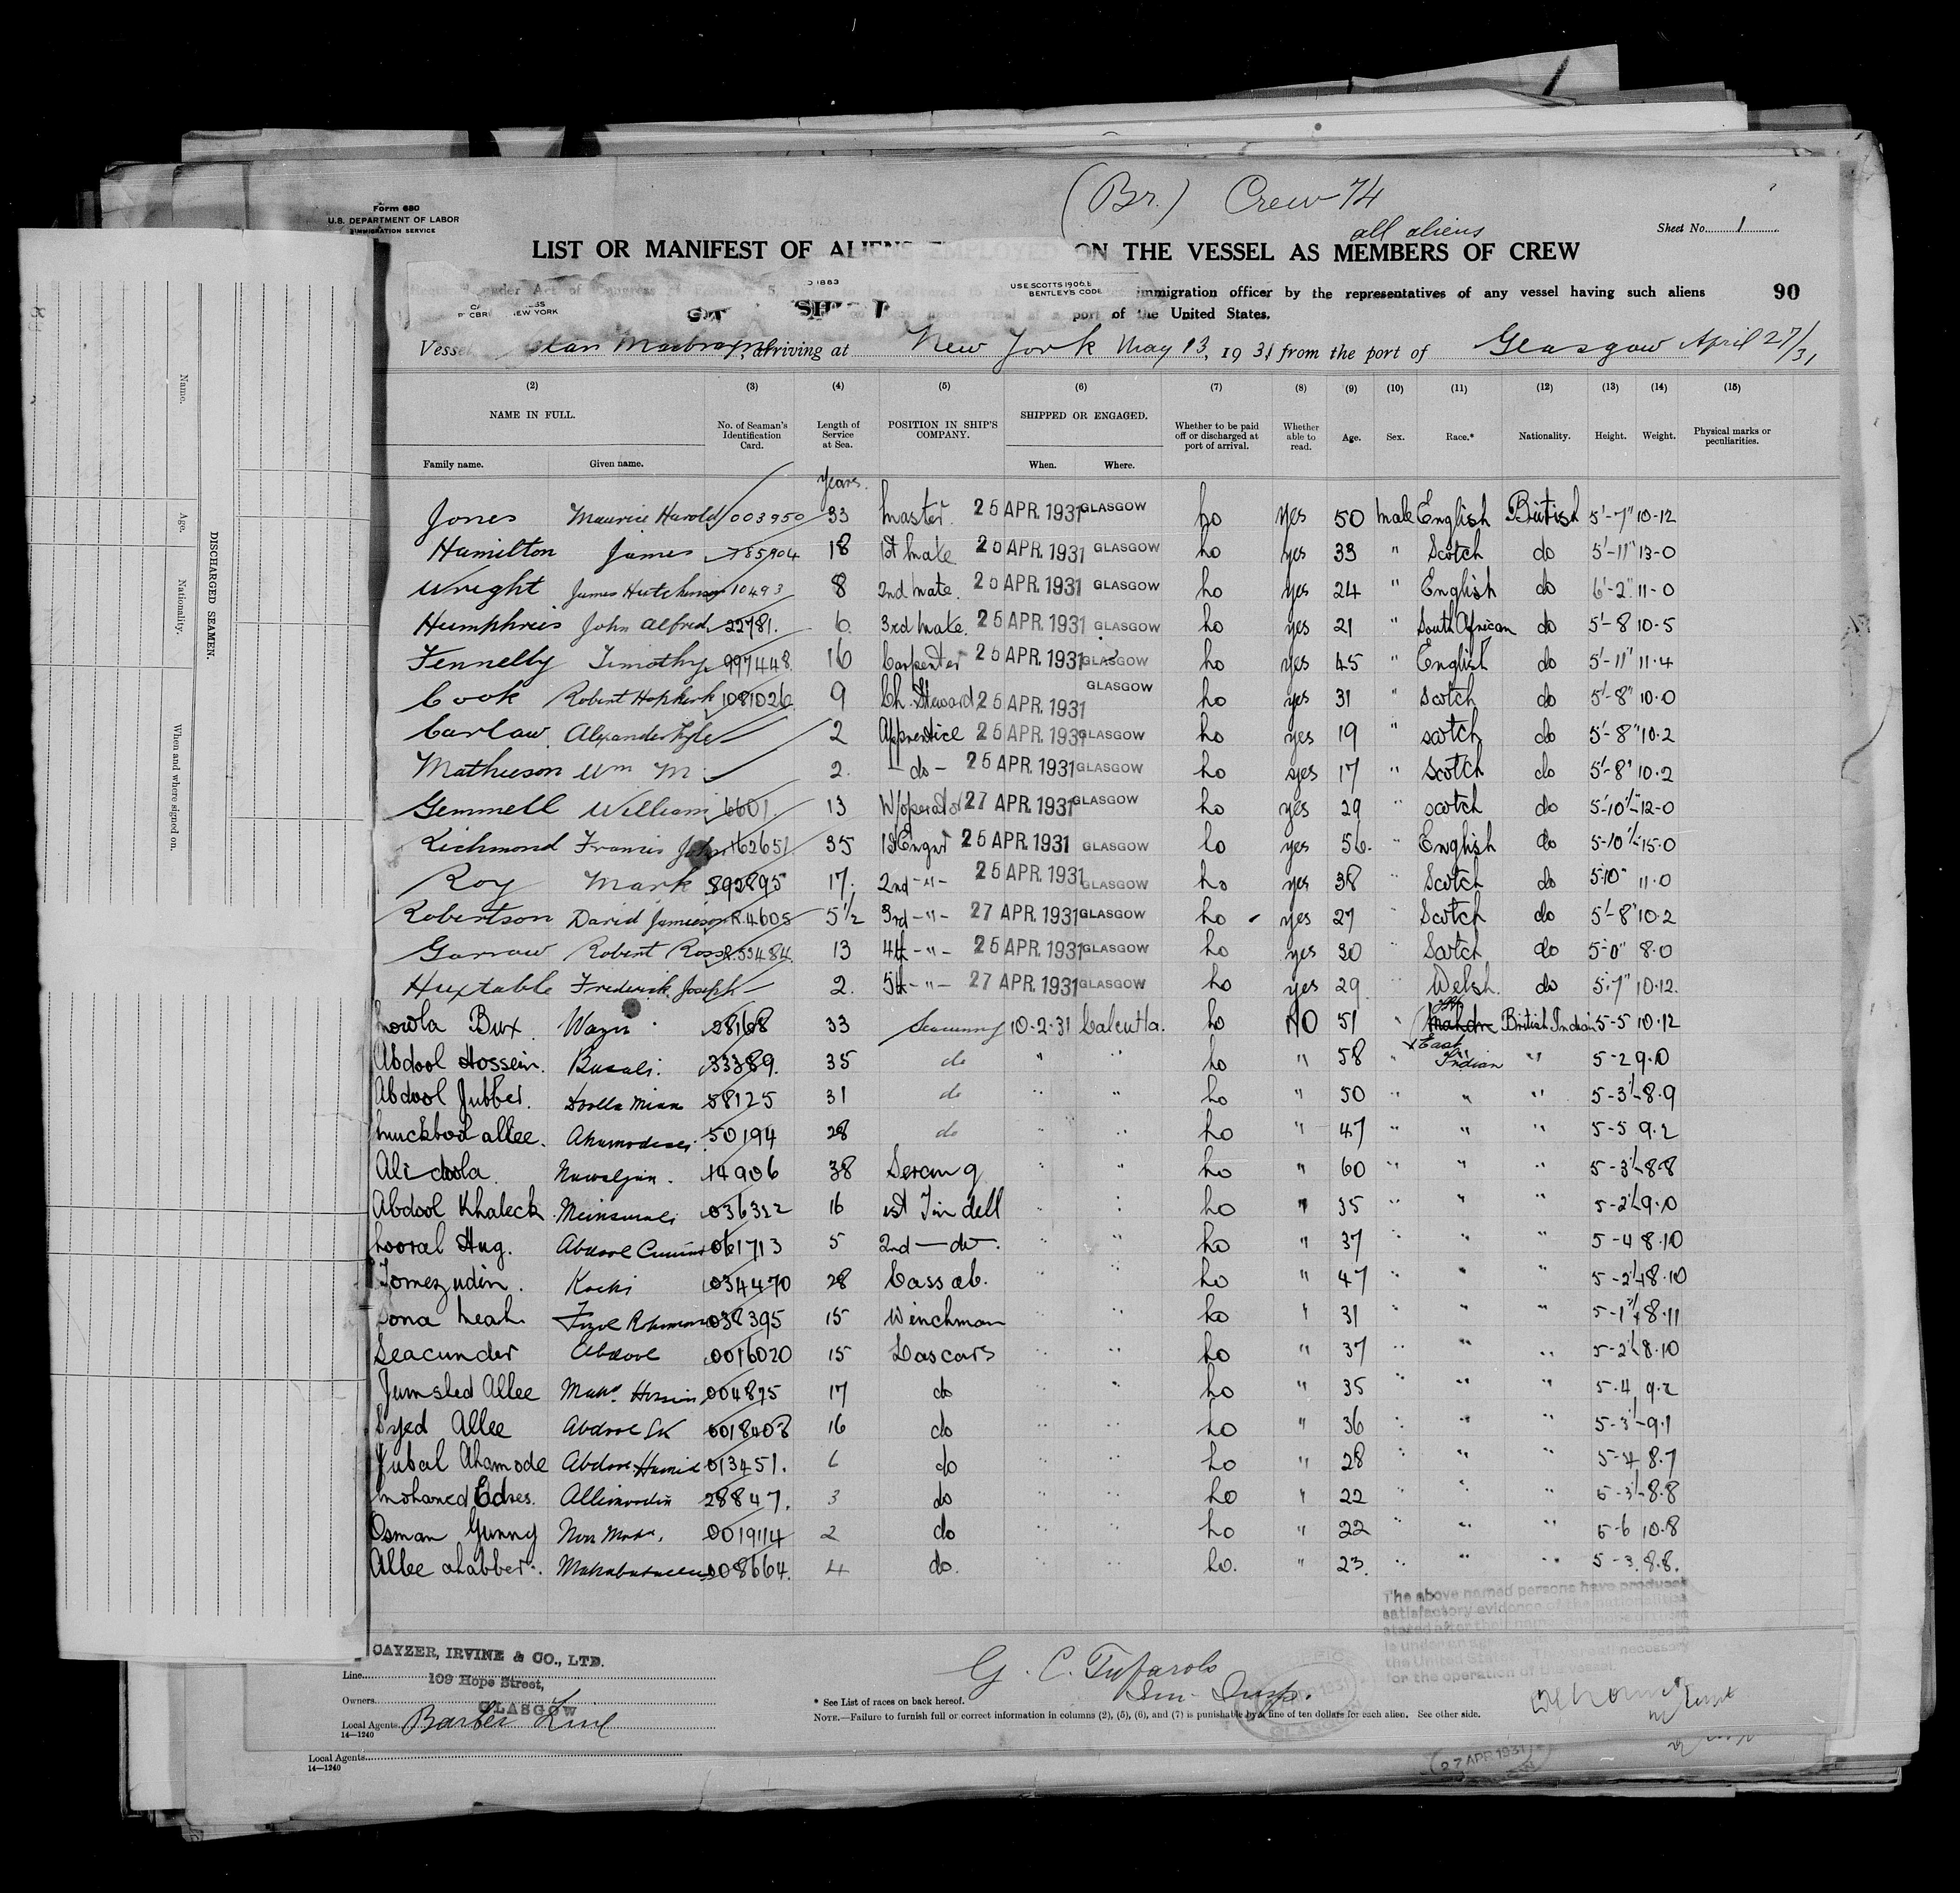 (Br.) Crew 74
all aliens
Form 680
U.S. DEPARTMENT OF LABOR
IMMIGRATION SERVICE
Sheet No. 1
LIST OR MANIFEST OF ALIENS EMPLOYED ON THE VESSEL AS MEMBERS OF CREW
USE SCOTTS 1906.E
BENTLEY'S CODE
immigration officer by the representatives of any vessel having such aliens
90
port of the United States.
Vessel Clan arriving at New York May 13, 1931 from the port of Glasgow April 27/31
(2) (3) (4) (5) (6) (7) (8) (9) (10) (11) (12) (13) (14) (15)
NAME IN FULL. No. of Seaman's Identification Card. Length of Service at Sea. POSITION IN SHIP'S COMPANY. SHIPPED OR ENGAGED. Whether to be paid off or discharged at port of arrival. Whether able to read. Age. Sex. Race.* Nationality. Height. Weight. Physical marks or peculiarities.
Family name. Given name. When. Where.
Years.
Jones Maurice Harold 003950 33 Master. 25 APR. 1931 GLASGOW No yes 50 Male English British 5'-7" 10-12
Hamilton James 33 18 1st Mate 25 APR. 1931 GLASGOW No yes 33 " Scotch do 5'-11" 13-0
Wright James Hutchinson 10493 8 2nd Mate. 25 APR. 1931 GLASGOW No yes 24 " English do 6'-2" 11-0
Humphries John Alfred 22781. 6 3rd Mate. 25 APR. 1931 GLASGOW No yes 21 " South African do 5'-8 10-5
Fennelly Timothy 997448 16 Carpenter 25 APR. 1931 GLASGOW No yes 45 " English do 5'-11" 11.4
Cook Robert Hopkirk 1081026 9 Ch. Steward 25 APR. 1931 GLASGOW No yes 31 " Scotch do 5'-8" 10.0
Carlaw Alexander Lyle 2 Apprentice 25 APR. 1931 GLASGOW No yes 19 " Scotch do 5'-8" 10.2
Mathieson Wm M. 2. -do- 25 APR. 1931 GLASGOW No yes 17 " Scotch do 5'-8" 10.2
Gemmell William 6601. 13 W/operator 27 APR. 1931 GLASGOW No yes 29 Scotch do 5-10½ 12-0
Richmond Francis John 162651 35 1st Engnr 25 APR. 1931 GLASGOW No yes 56. " English do 5-10½ 15.0
Roy Mark 892895 17. 2nd -"- 25 APR. 1931 GLASGOW No yes 38 " Scotch do 5-10" 11.0
Robertson David Jamieson R.4605 5½ 3rd -"- 27 APR. 1931 GLASGOW No yes 27 Scotch do 5'-8" 10.2
Garrow Robert Ross R.55484. 13 4th -"- 25 APR. 1931 GLASGOW No yes 30 Scotch do 5-0" 8.0
Huxtable Frederick Joseph 2. 5th -"- 27 APR. 1931 GLASGOW No yes 29 Welsh. do 5-7" 10.12.
Mowla Bux. 28168 33 Seacunny 10.2.31 Calcutta. No NO 51 " East Indian British Indian 5-5 10.12
Abdool Hossein. Busali. 33389. 35 do " " No " 58 " " " 5-2 9.0
Abdool Jubber. Doolla Mian 58125 31 do " " No " 50 " " " 5-3½ 8.9
allee. 50194 28 do " " No " 47 " " " 5-5 9.2
Ali 14906 38 Serang " " No " 60 " " " 5-3½ 8.8
Abdool Khaleck 036322 16 1st Tindell " " No " 35 " " " 5-2½ 9.0
Nooral Huq. Abdool 061713 5 2nd -do-. " " No " 37 " " " 5-4 8.10
034470 28 Cassab. " " No " 47 " " " 5-2½ 8.10
038395 15 Winchman " " No " 31 " " " 5-1½ 8.11
Seacunder Abdool 0016020 15 Lascars " " No " 37 " " " 5-2½ 8.10
Jumshed Allee 004875 17 do " " No " 35 " " " 5.4 9.2
Syed Allee Abdool Sk 0018408 16 do " " No " 36 " " " 5-3½ 9.1
Jubal Ahamode Abdool Hamid 013451. 6 do " " No " 28 " " " 5-4 8.7
Mohamed Edres. Allimoodin 28847. 3 do " " No " 22 " " " 5-3½ 8.8
Osman Gunny 0019114 2 do " " No " 22 " " " 5-6 10.8
Allee 008664. 4 do. " " No. " 23. " " " 5-3. 8.8.
The above named persons have produced
satisfactory evidence of the nationalities
the United States
for the operation of the vessel.
CAYZER, IRVINE & CO., LTD.
Line
109 Hope Street,
Owners
GLASGOW
Local Agents Barber Line
14—1240
G. C. Tufarolo
Imm. Insp.
* See List of races on back hereof.
NOTE.—Failure to furnish full or correct information in columns (2), (5), (6), and (7) is punishable by a fine of ten dollars for each alien. See other side.
Local Agents
14—1240
27 APR 1931
DISCHARGED SEAMEN.
Name. Age. Nationality. When and where signed on.